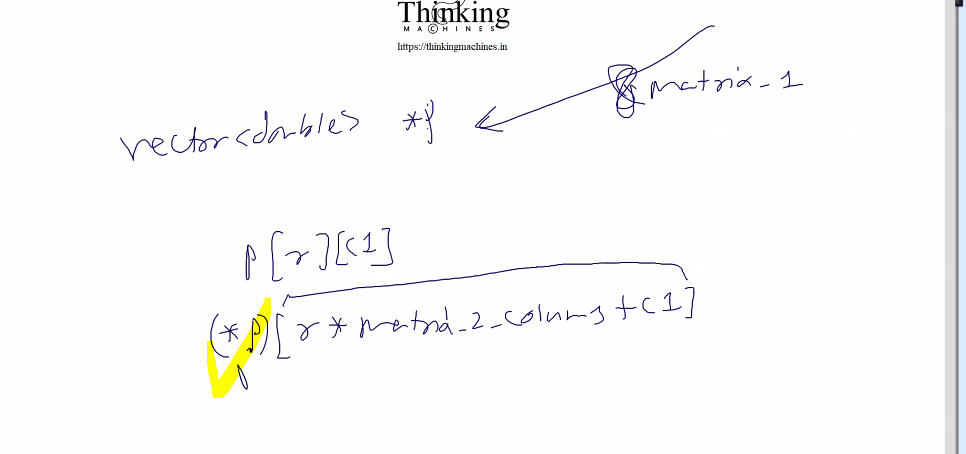 Thinking
MACHINES
https://thinkingmachines.in
& matrix_1
vector<double> *p
p[r][c1]
(*p)[r * matrix_2_colums + c1]